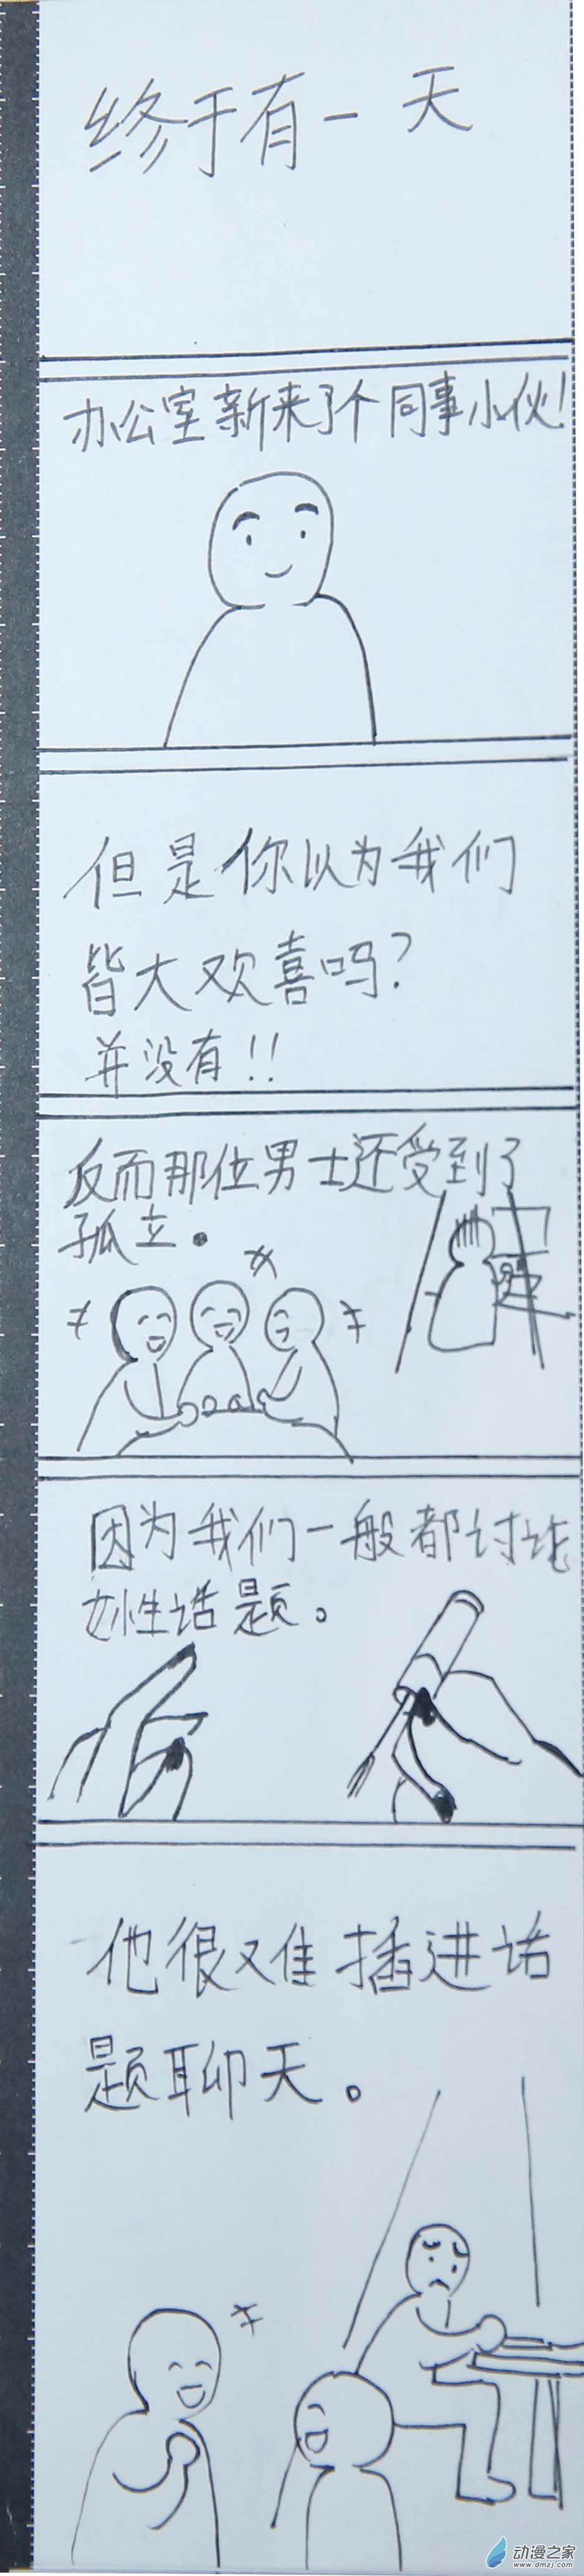 终于有一天
办公室新来了个同事小伙!
但是你以为我们
皆大欢喜吗?
并没有!!
反而那位男士还受到了
孤立。
因为我们一般都讨论
女性话题。
他很难插进话
题聊天。
动漫之家
www.dmzj.com